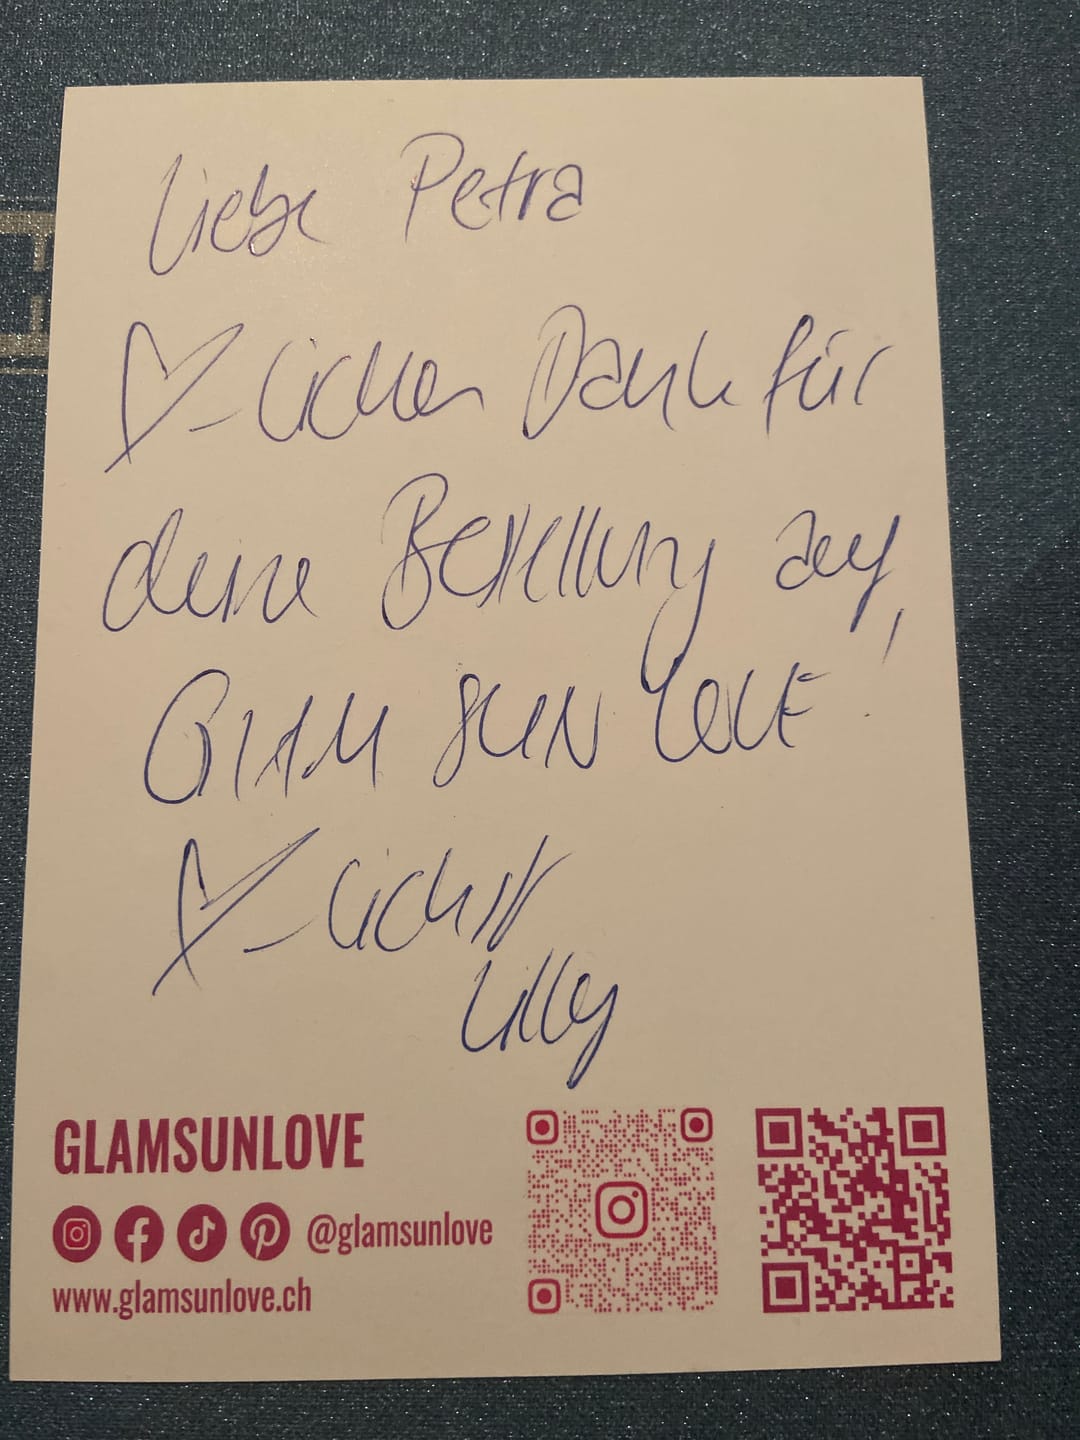 Liebe Petra
♡-lichen Dank für
deine Bestellung auf
GLAM SUN LOVE!
♡-lichst
Lilly
GLAMSUNLOVE
@glamsunlove
www.glamsunlove.ch